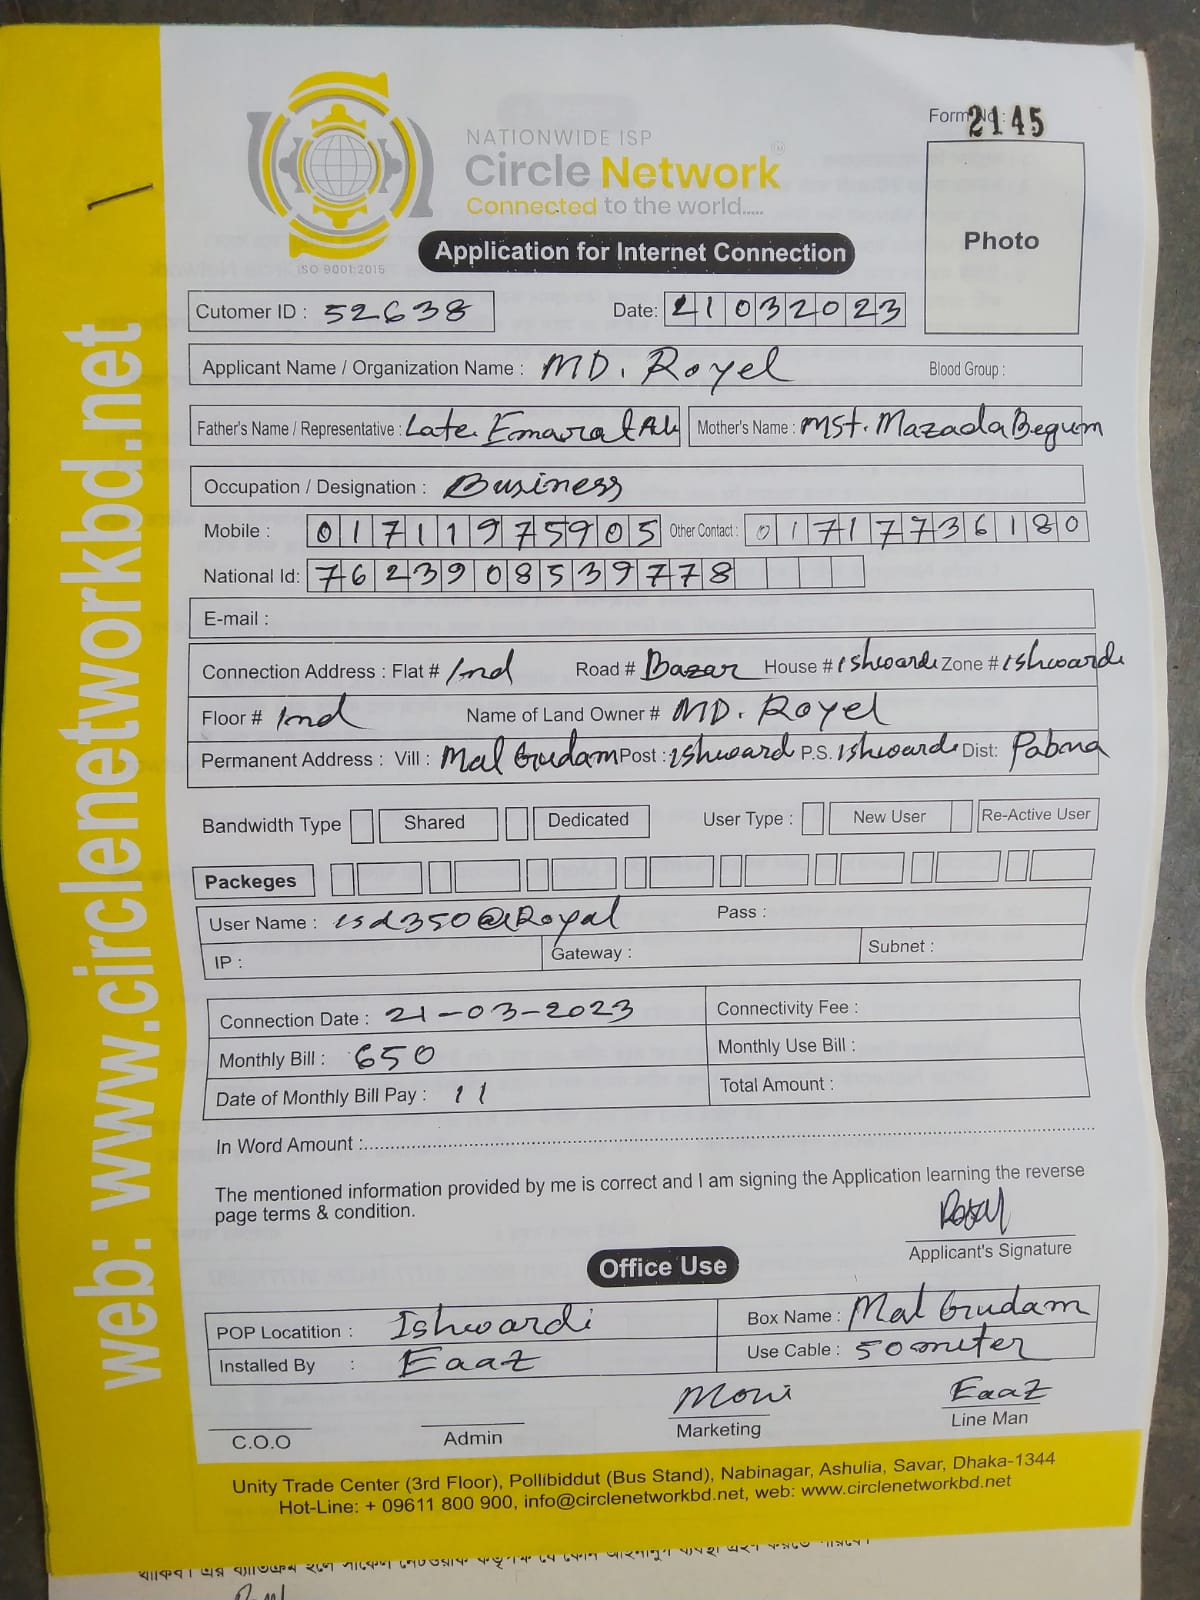 Form No : 2145
NATIONWIDE ISP
Circle Network TM
Connected to the world.....
ISO 9001:2015
Application for Internet Connection
Photo
Cutomer ID : 52638 Date: 21032023
Applicant Name / Organization Name : MD. Royel Blood Group :
Father's Name / Representative : Late. Emarat Ali Mother's Name : MSt. Mazada Begum
Occupation / Designation : Business
Mobile : 01711975905 Other Contact : 01717736180
National Id: 7623908539778
E-mail :
Connection Address : Flat # Ind Road # Bazar House # ishwardi Zone # ishwardi
Floor # Ind Name of Land Owner # MD. Royel
Permanent Address : Vill : Mal Gudam Post : ishward P.S. ishwardi Dist: Pabna
Bandwidth Type Shared Dedicated User Type : New User Re-Active User
Packeges
User Name : isd350@Royal Pass :
IP : Gateway : Subnet :
Connection Date : 21-03-2023 Connectivity Fee :
Monthly Bill : 650 Monthly Use Bill :
Date of Monthly Bill Pay : 11 Total Amount :
In Word Amount :
The mentioned information provided by me is correct and I am signing the Application learning the reverse
page terms & condition.
Royel
Applicant's Signature
Office Use
POP Locatition : Ishwardi Box Name : Mal Gudam
Installed By : Eaaz Use Cable : 50 miter
Moni Eaaz
C.O.O Admin Marketing Line Man
Unity Trade Center (3rd Floor), Pollibiddut (Bus Stand), Nabinagar, Ashulia, Savar, Dhaka-1344
Hot-Line: + 09611 800 900, info@circlenetworkbd.net, web: www.circlenetworkbd.net
web: www.circlenetworkbd.net